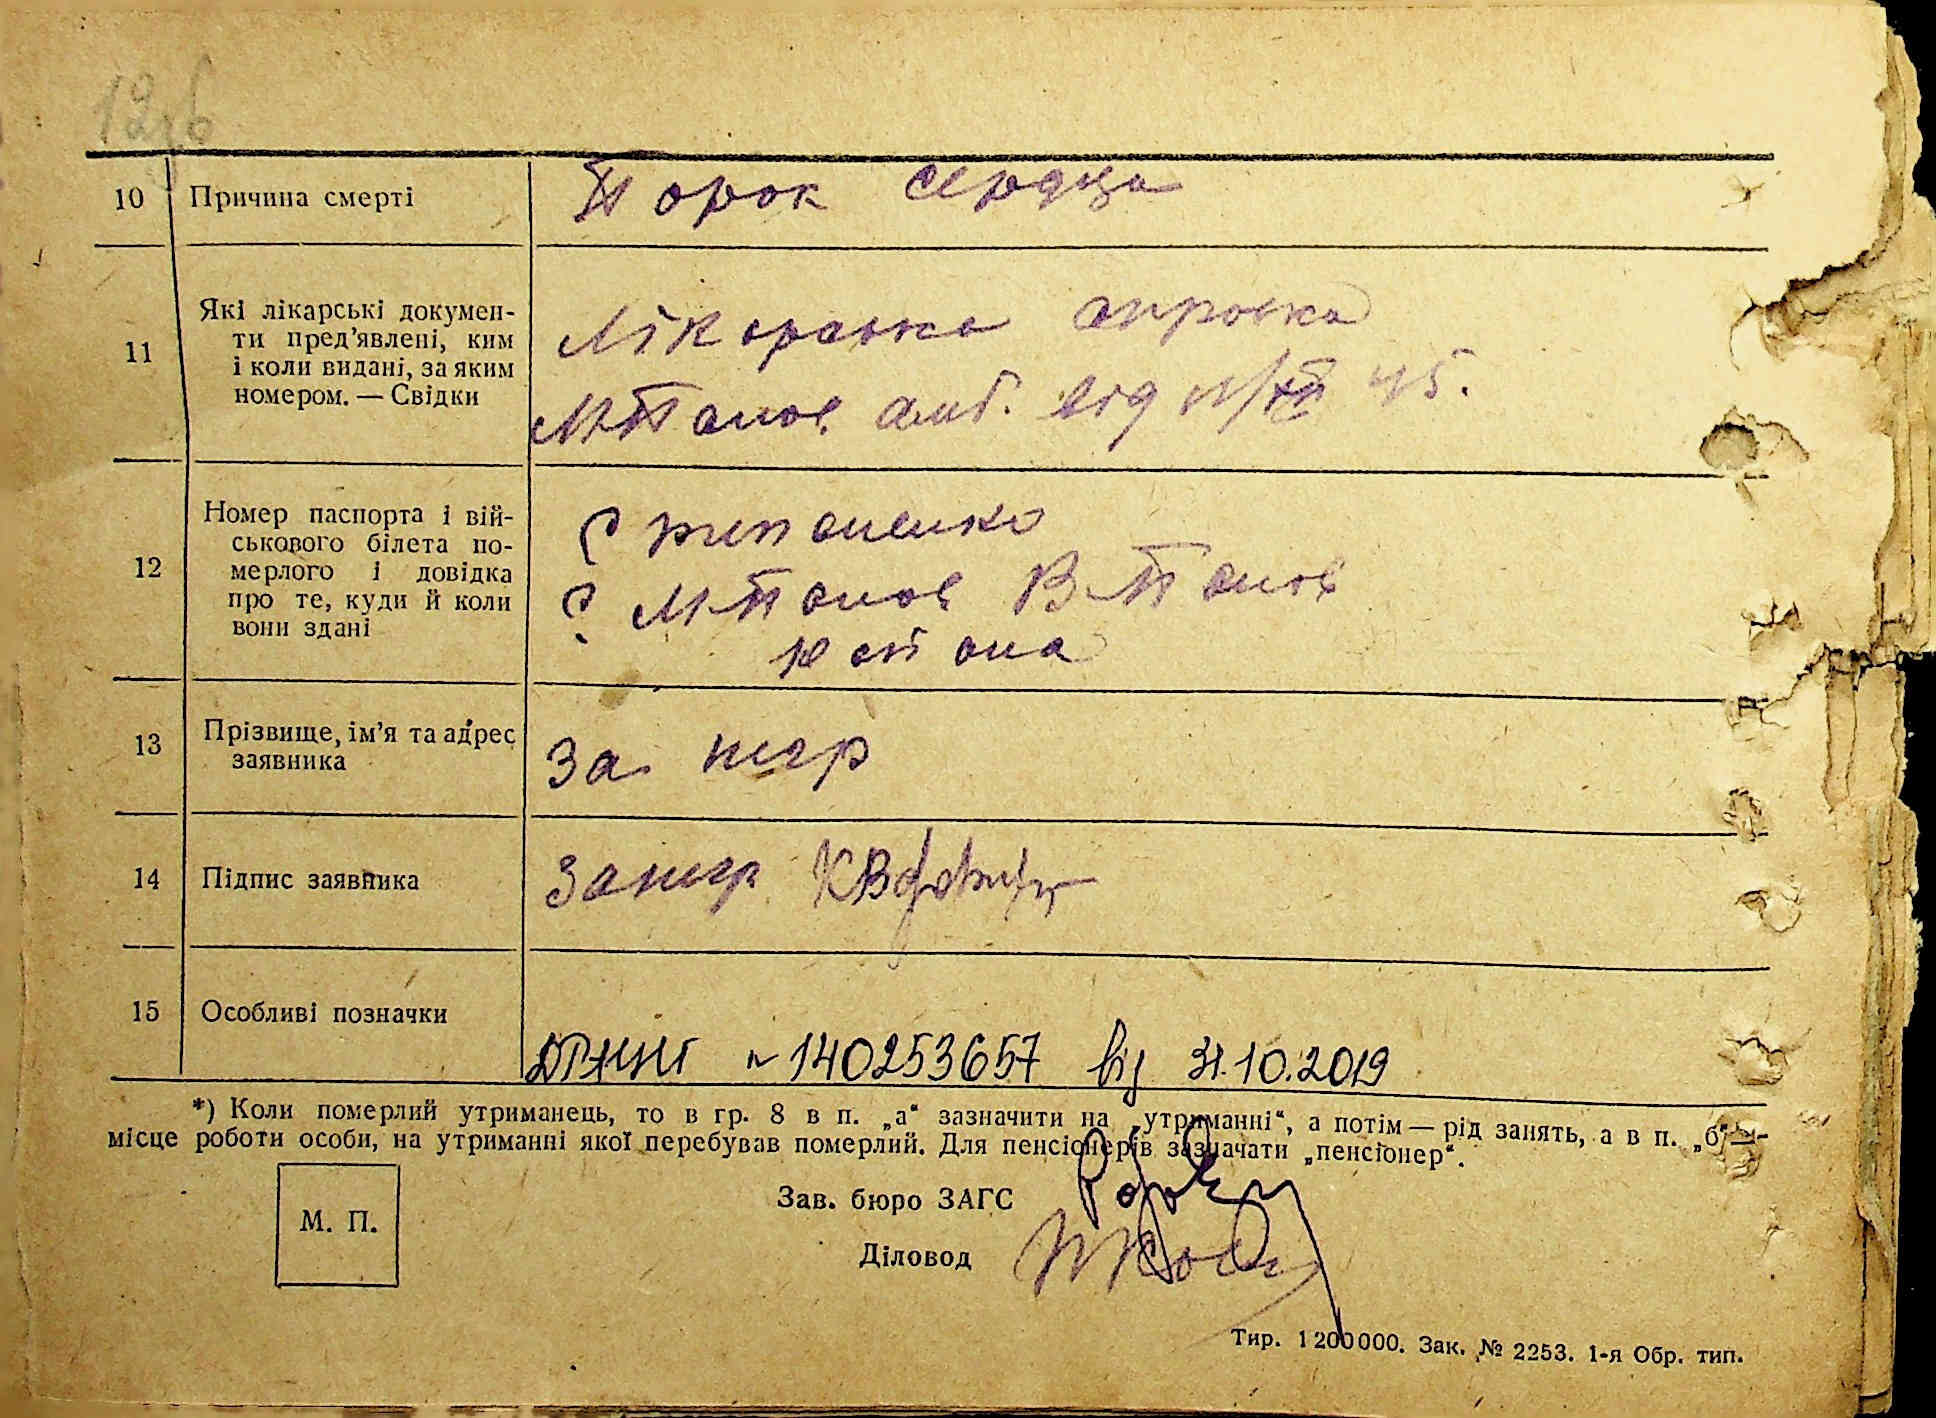 10 Причина смерті Порок сердца
11 Які лікарські докумен-
ти пред’явлені, ким
і коли видані, за яким
номером. — Свідки
Лікарська
М-Танов. амб. від 45.
12 Номер паспорта і вій-
ськового білета по-
мерлого і довідка
про те, куди й коли
вони здані
с М-Танов В-Танов
13 Прізвище, ім’я та адрес
заявника
За негр
14 Підпис заявника
Занегр
15 Особливі позначки
№ 140253657 від 31.10.2019
*) Коли померлий утриманець, то в гр. 8 в п. „а“ зазначити на „утриманні“, а потім — рід занять, а в п. „б“—
місце роботи особи, на утриманні якої перебував померлий. Для пенсіонерів зазначати „пенсіонер“.
М. П.
Зав. бюро ЗАГС
Діловод
Тир. 1 200 000. Зак. № 2253. 1-я Обр. тип.